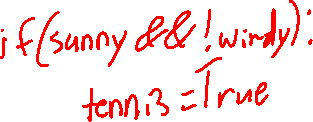 if(sunny && !windy):
tennis = True